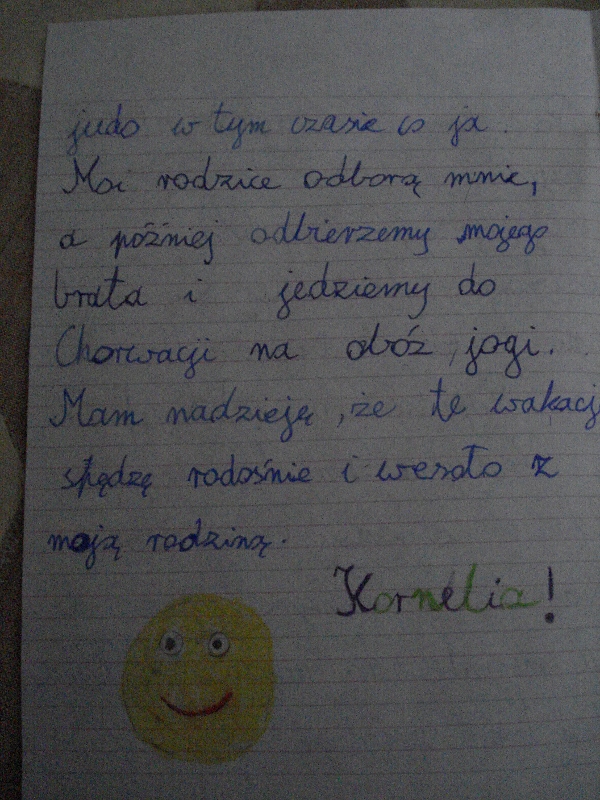 judo w tym czasie co ja.
Moi rodzice odbiorą mnie,
a później odbierzemy mojego
brata i jedziemy do
Chorwacji na obóz jogi.
Mam nadzieję, że te wakacj
spędzę radośnie i wesoło z
moją rodziną.
Kornelia!